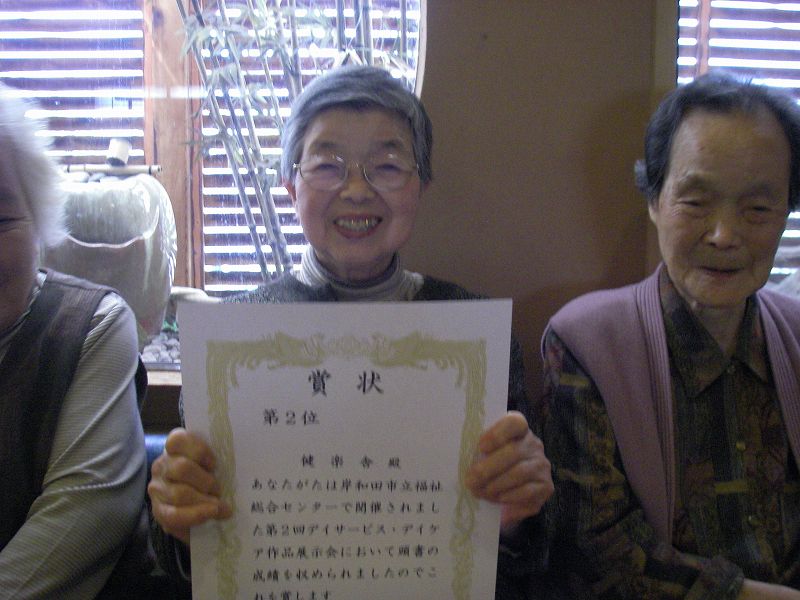 賞状
第2位
健楽舎殿
あなたがたは岸和田市立福祉
総合センターで開催されまし
た第2回デイサービス・デイケ
ア作品展示会において頭書の
成績を収められましたのでこ
れを賞します